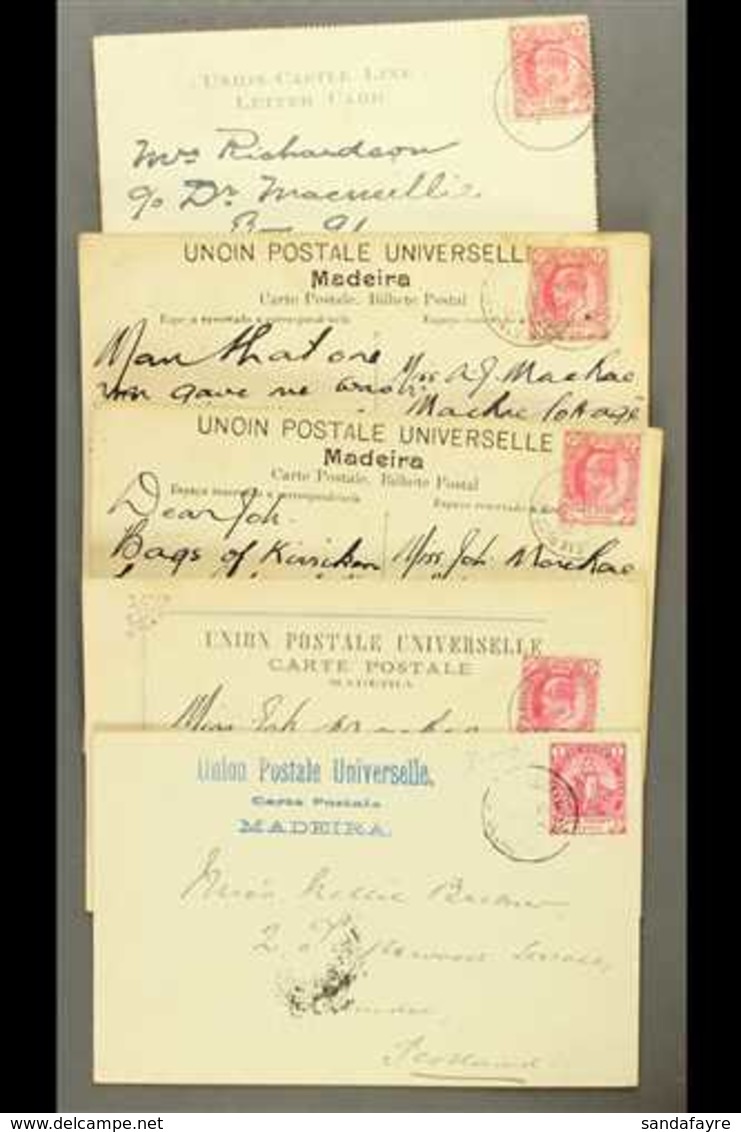 UNION-CASTLE LINE
LETTER CARD
Mrs Richardson
c/o Dr
UNOIN POSTALE UNIVERSELLE
Madeira
Carte Postale. Bilhete Postal
Man that one
you gave me was
Mrs A J. MacRae
MacRae Cottage
UNOIN POSTALE UNIVERSELLE
Madeira
Carte Postale. Bilhete Postal
Dear Joh.
Bags of
Miss Joh. MacRae
UNION POSTALE UNIVERSELLE
CARTE POSTALE
MADEIRA
Miss
Union Postale Universelle.
Carte Postale
MADEIRA.
Miss Nellie
2.
Terrace,
Dundee
Scotland
sandafayre